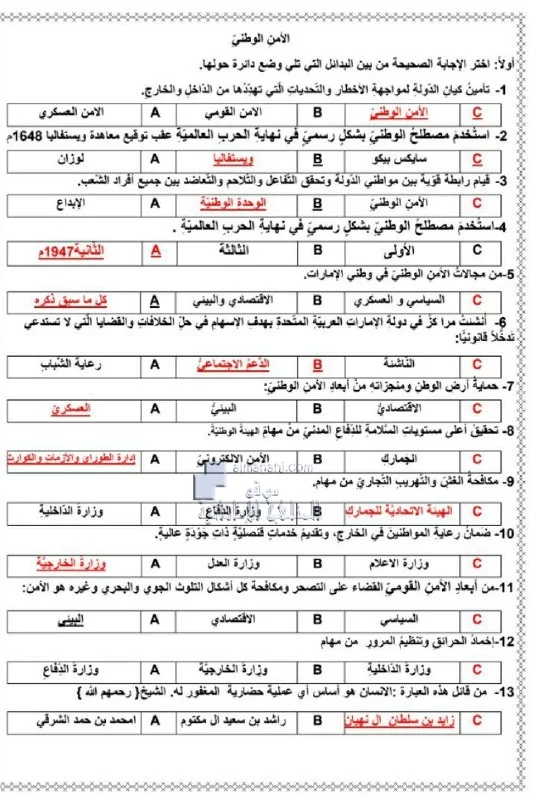 الأمن الوطنيّ
أولاً: اختر الإجابة الصحيحة من بين البدائل التي تلي وضع دائرة حولها.
1- تأمينُ كيانِ الدّولةِ لمواجهةِ الأخطار والتّحدياتِ الّتي تهدّدُها من الدّاخلِ والخارج.
C الأمن الوطنيّ B الامن القومي A الامن العسكري
2- استُخدمَ مصطلحُ الوطنيّ بشكلٍ رسميّ في نهايةِ الحربِ العالميّة عقب توقيع معاهدة ويستفاليا 1648م
C سايكس بيكو B ويستفاليا A لوزان
3- قيام رابطة قوّية بين مواطني الدّولة وتحقق التّفاعل والتّلاحم والتّعاضد بين جميع أفراد الشّعب.
C الأمن الوطنيّ B الوحدة الوطنيّة A الإبداع
4-استُخدمَ مصطلحُ الوطنيّ بشكلٍ رسميّ في نهايةِ الحربِ العالميّةِ .
C الأولى B الثالثة A الثّانية1947م
5-من مجالاتُ الأمنِ الوطنيّ في وطني الإمارات.
C السياسي و العسكري B الاقتصادي والبيني A كل ما سبق ذكره
6- أنشئتْ مرا كزُ في دولةِ الإماراتِ العربيّةِ المتّحدةِ بهدفِ الإسهامِ في حلّ الخلافاتِ والقضايا الّتي لا تستدعي
تدخّلاً قانونيًّا:
C النّاشئة B الدّعمُ الاجتماعيُّ A رعاية الشّبابِ
7- حمايةُ أرضِ الوطنِ ومنجزاتِهِ منْ أبعادِ الأمنِ الوطنيّ:
C الاقتصاديُّ B البيئيُّ A العسكريّ
8- تحقيقُ أعلى مستوياتِ السّلامةِ للدّفاعِ المدنيّ منْ مهامّ الهيئة الوطنيّة.
C الجمارك B الأمن الالكترونيّ A إدارة الطوراي والأزمات والكوارث
9- مكافحةُ الغشّ والتّهريبِ التّجاريّ من مهام.
C الهيئة الاتحاديّة للجمارك B وزارة الدّفاع A وزارة الدّاخلية
10- ضمانُ رعايةِ المواطنين في الخارج، وتقديمُ خدماتٍ قنصليّةٍ ذاتِ جَوْدَةٍ عاليةٍ.
C وزارة الاعلام B وزارة العدل A وزارة الخارجيّة
11-من أبعادِ الأمنِ القوميّ القضاء على التصحر ومكافحة كل أشكال التلوث الجوي والبحري وغيره هو الأمن:
C السياسي B الاقتصادي A البيئي
12-إخمادُ الحرائق وتنظيمُ المرورِ من مهام
C وزارة الدّاخليةِ B وزارة الخارجيّة A وزارة الدّفاع
13- من قائل هذه العبارة :الانسان هو أساس أي عملية حضارية المغفور له. الشيخ{ رحمهم الله }
C زايد بن سلطان ال نهيان B راشد بن سعيد ال مكتوم A امحمد بن حمد الشرقي
almanahj.com
موقع
المناهج الإماراتية